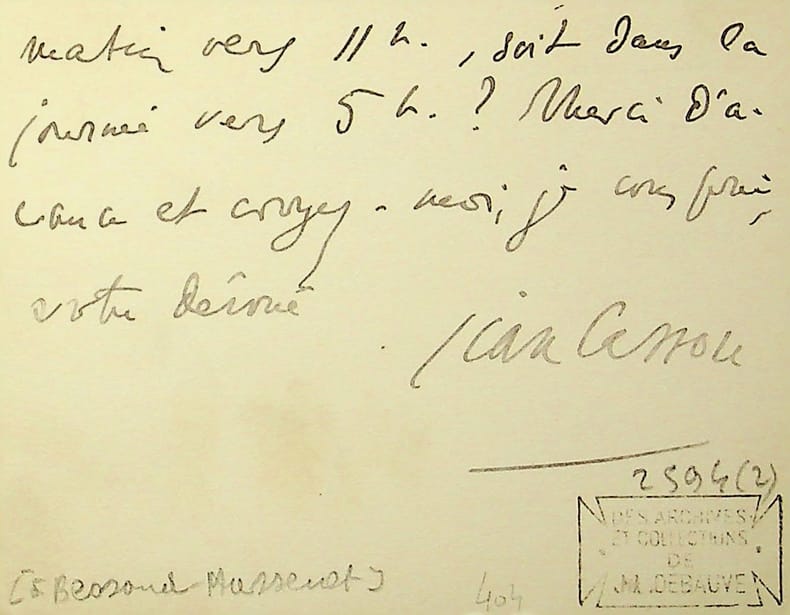 matin vers 11 h., soit dans la
journée vers 5 h. ? Merci d'a-
vance et croyez-moi, je vous prie,
votre dévoué
Jean Cassou
2594(2)
DES ARCHIVES
ET COLLECTIONS
DE
J.M. DEBAUVE
[à Bessand-Massenet]
404